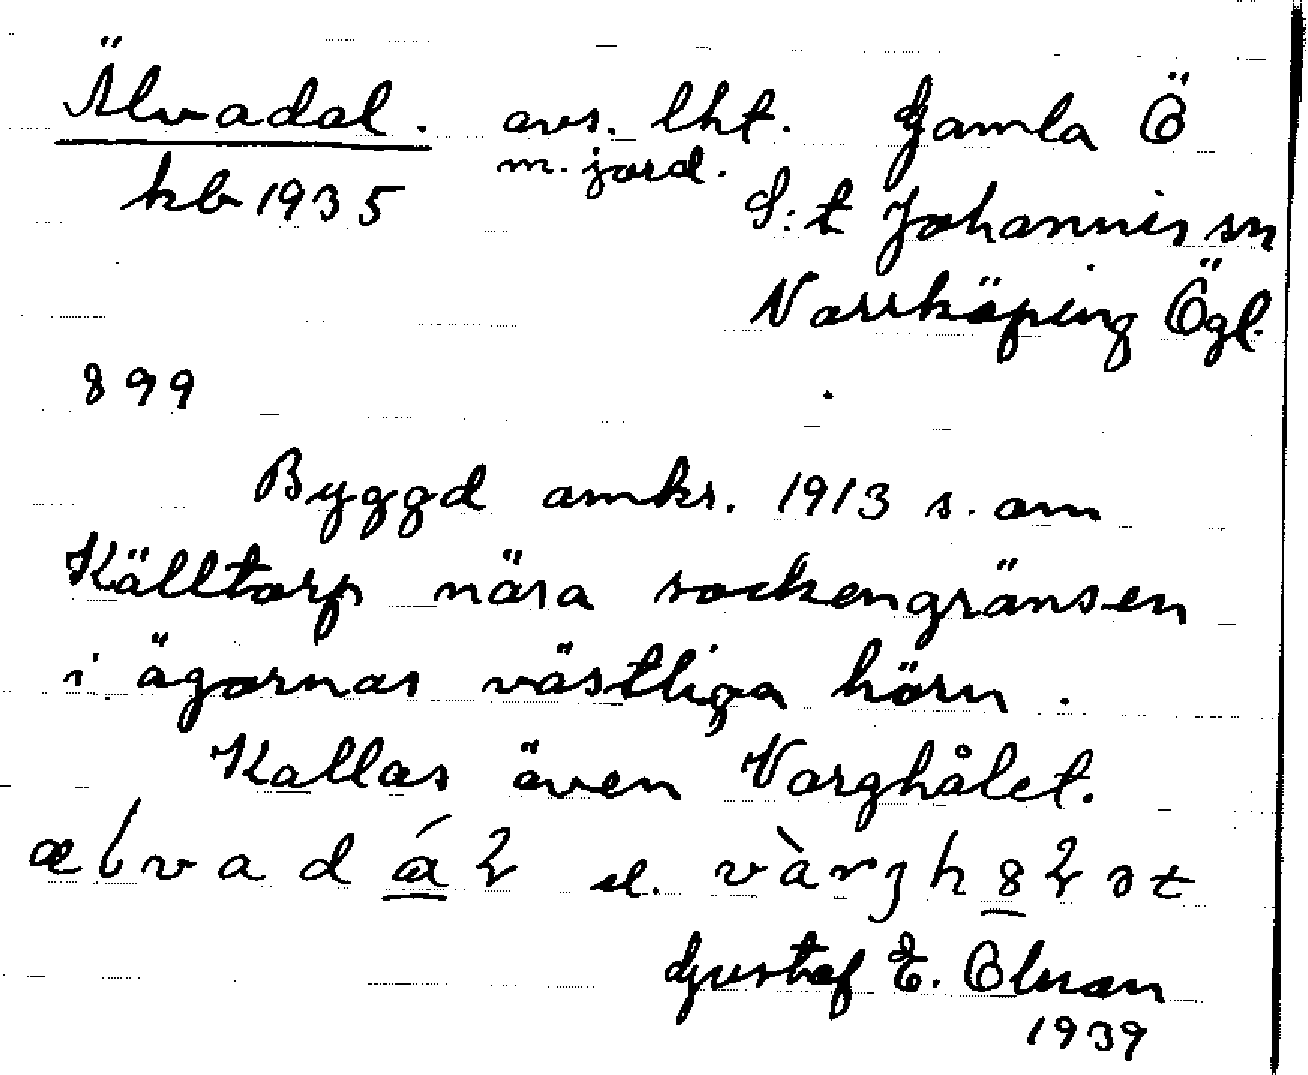 Älvadal. avs. lht. Gamla Ö
kb 1935 m. jord. S:t Johannis sn
Norrköping Ögl.
899
Byggd omkr. 1913 s. om
Källtorp nära sockengränsen
i ägornas västliga hörn.
Kallas även Varghålet.
el.
Gustaf E. Olsson
1939